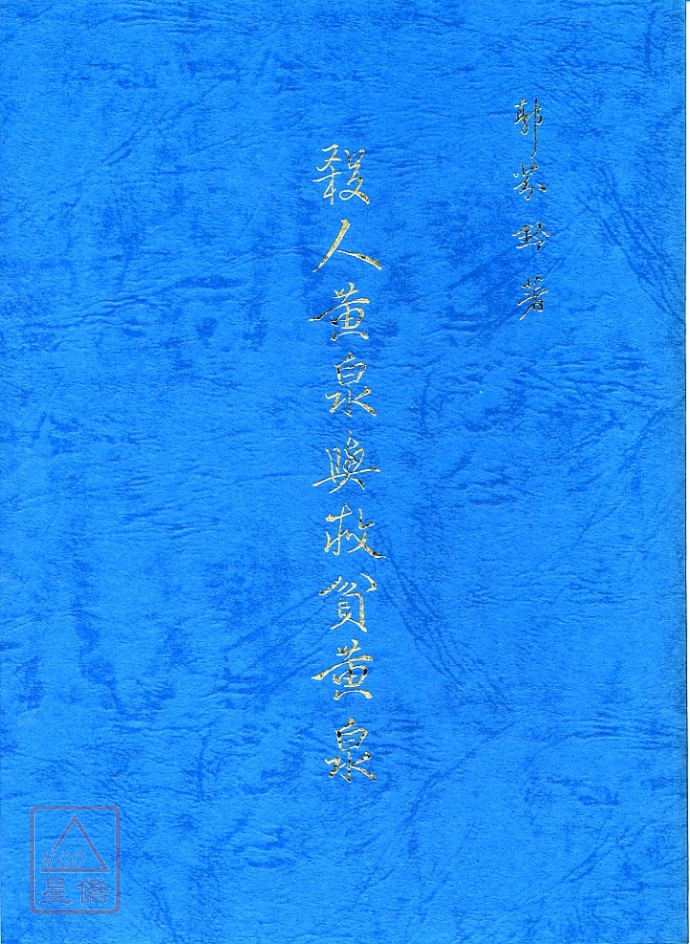 郭芬鈴 著
殺人黃泉與救貧黃泉
星僑